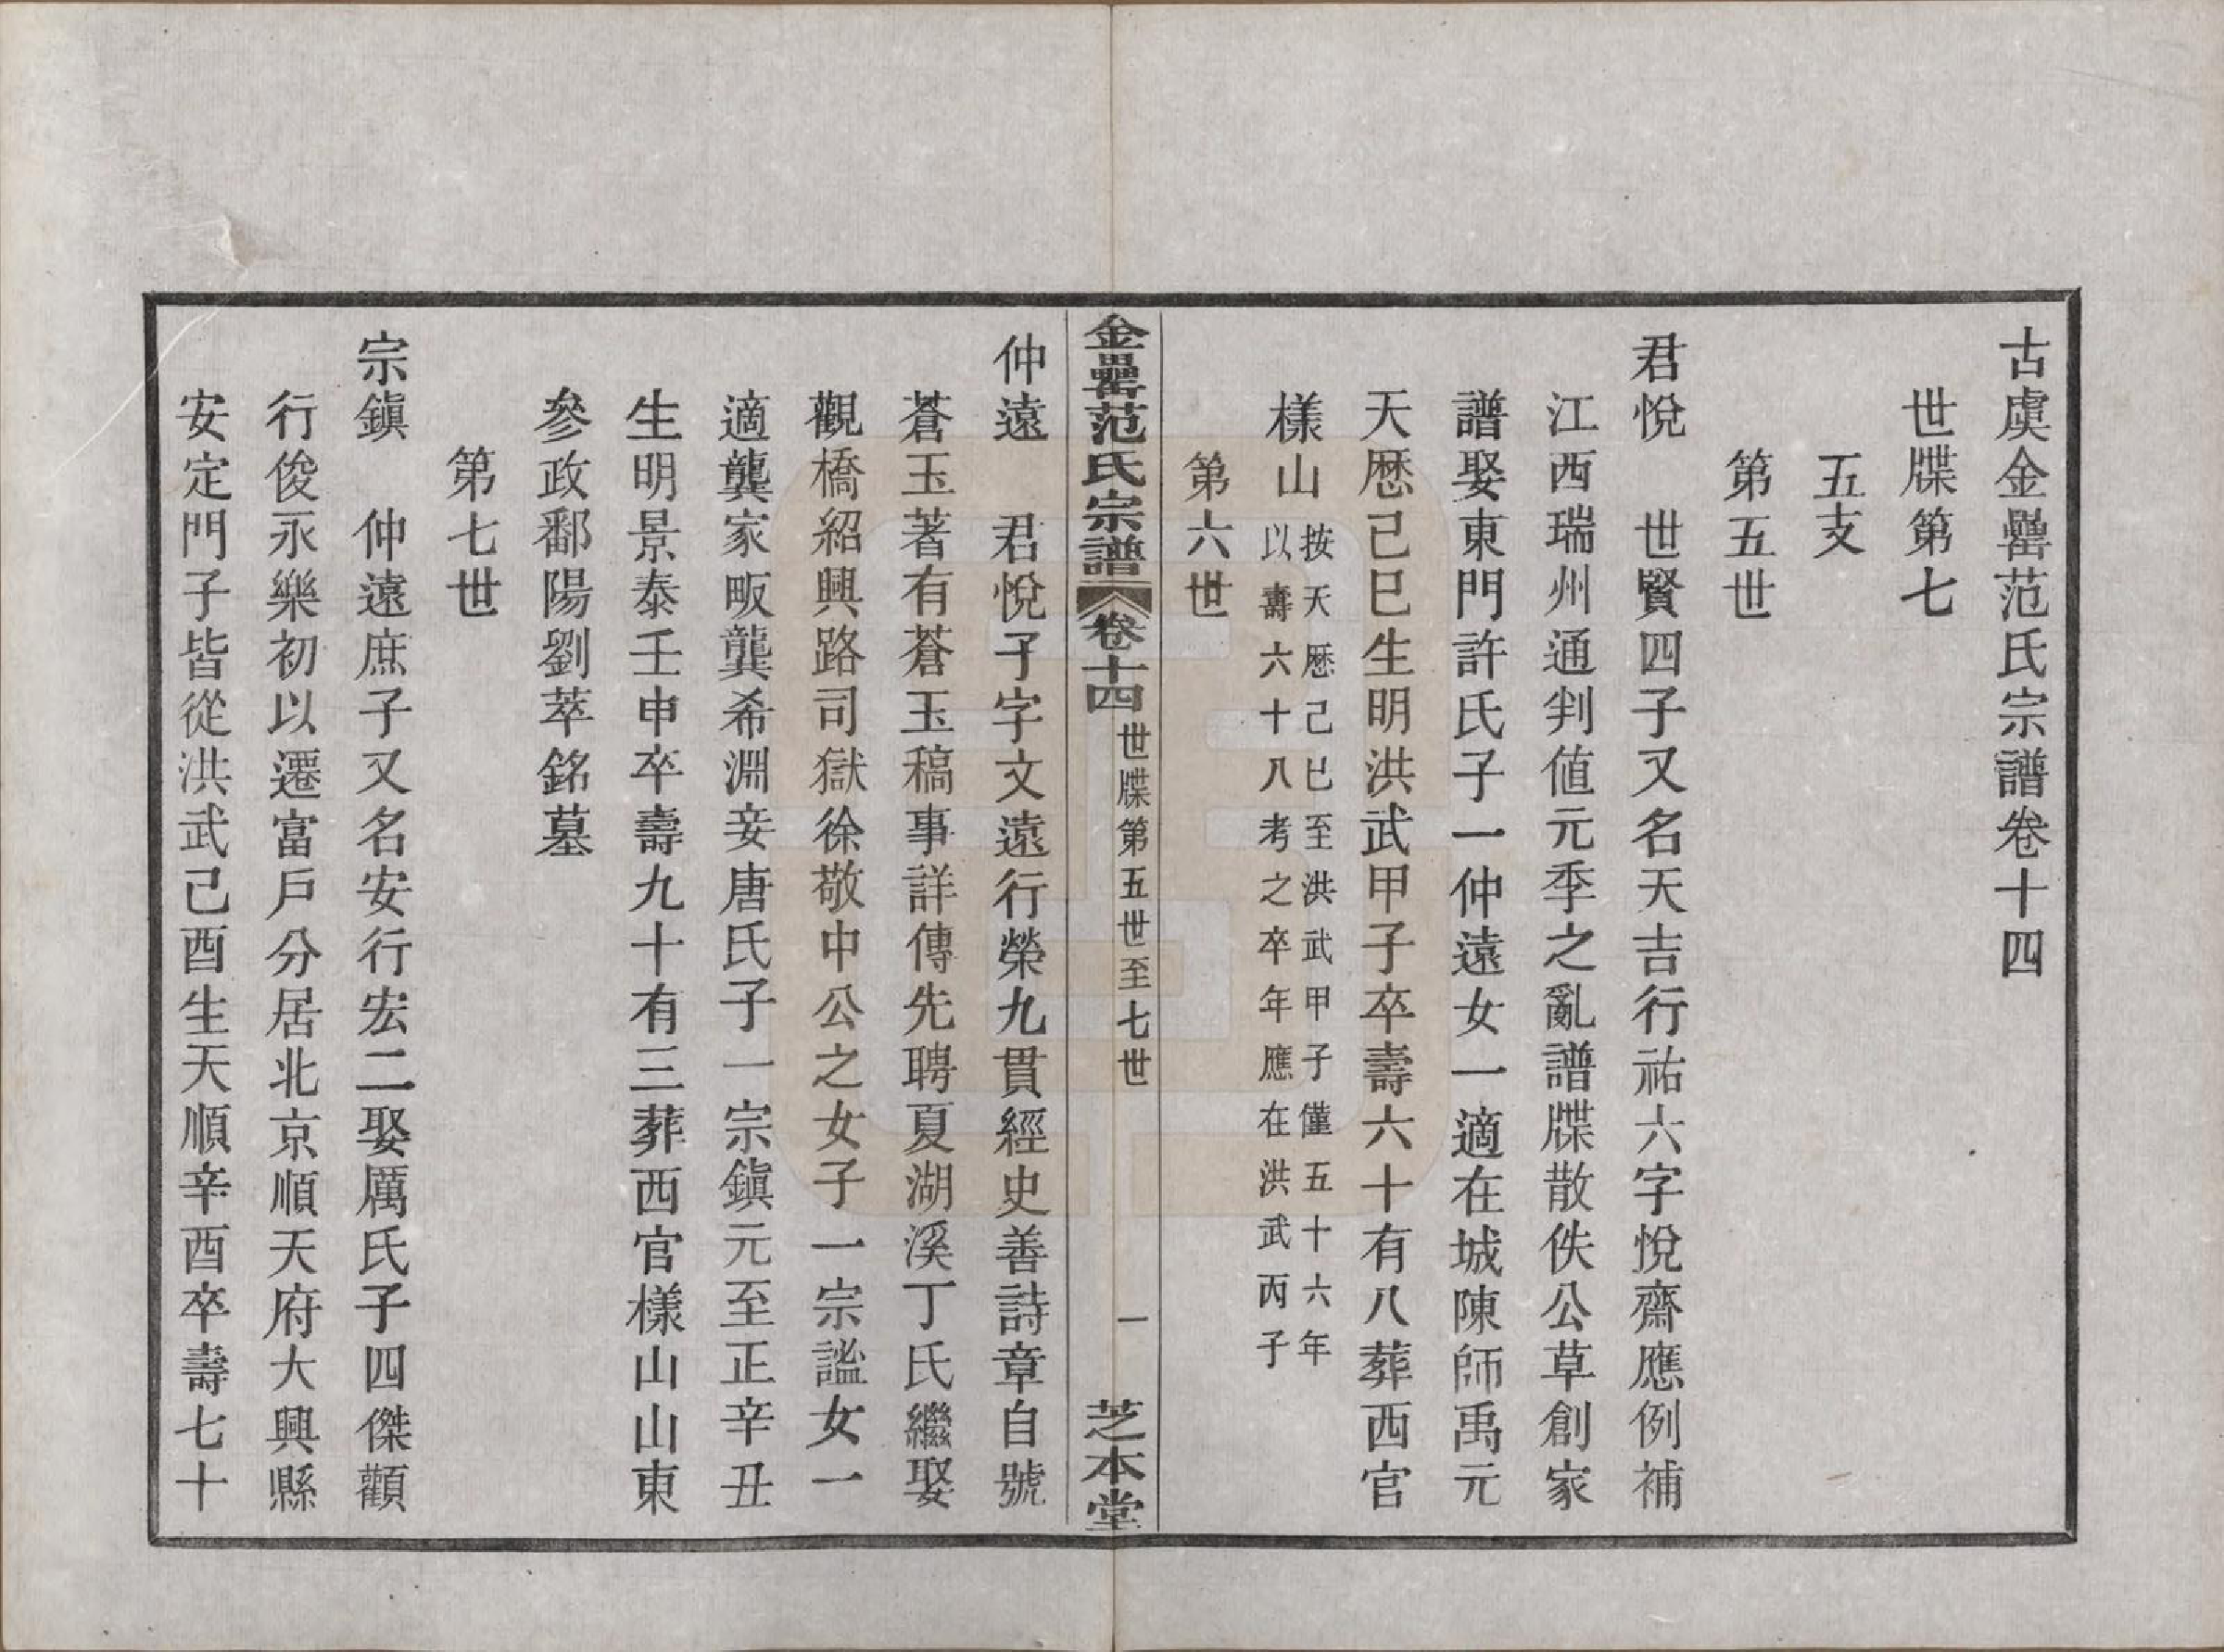 古虞金罍范氏宗譜卷十四
世牒第七
五支
第五世
君悅　世賢四子又名天吉行祐六字悅齋應例補
江西瑞州通判値元季之亂譜牒散佚公草創家
譜娶東門許氏子一仲遠女一適在城陳師禹元
天厯己巳生明洪武甲子卒壽六十有八葬西官
樣山
按天厯己巳至洪武甲子僅五十六年
以壽六十八考之卒年應在洪武丙子
第六世
金罍范氏宗譜
卷十四
世牒第五世至七世
一
芝本堂
仲遠　君悅子字文遠行榮九貫經史善詩章自號
蒼玉著有蒼玉稿事詳傳先聘夏湖溪丁氏繼娶
觀橋紹興路司獄徐敬中公之女子一宗謐女一
適龔家畈龔希淵妾唐氏子一宗鎭元至正辛丑
生明景泰壬申卒壽九十有三葬西官樣山山東
參政鄱陽劉萃銘墓
第七世
宗鎭　仲遠庶子又名安行宏二娶厲氏子四傑顴
行俊永樂初以遷富戶分居北京順天府大興縣
安定門子皆從洪武己酉生天順辛酉卒壽七十